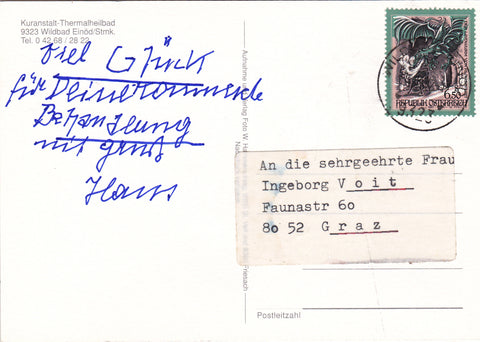 Kuranstalt-Thermalheilbad
9323 Wildbad Einöd/Stmk.
Tel. 0 42 68 / 28 22
Viel Glück
für Deine kommende
Behandlung
mit gruß
Hans
6.50
REPUBLIK ÖSTERREICH
An die sehrgeehrte Frau
Ingeborg Voit
Faunastr 60
80 52 Graz
Postleitzahl
Aufnahme und Verlag Foto W.
Friesach